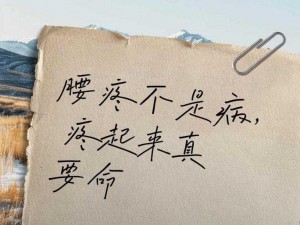 腰疼不是病,
疼起来真
要命